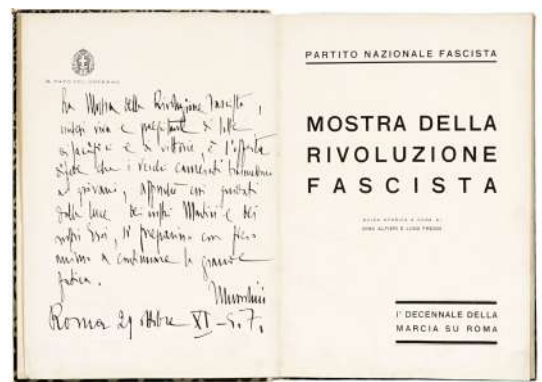 IL CAPO DEL GOVERNO
La Mostra della Rivoluzione Fascista,
sintesi viva e palpitante di lotte
sacrifici e vittorie, è l'offerta
che i vecchi camerati tramandano
ai giovani, affinché essi guidati
dalla luce dei nostri Martiri e dei
nostri Eroi, si preparino con fiero
animo a continuare la grande
fatica.
Mussolini
Roma 29 ottobre XI - E.F.
PARTITO NAZIONALE FASCISTA
MOSTRA DELLA
RIVOLUZIONE
FASCISTA
GUIDA STORICA A CURA DI
DINO ALFIERI E LUIGI FREDDI
I° DECENNALE DELLA
MARCIA SU ROMA